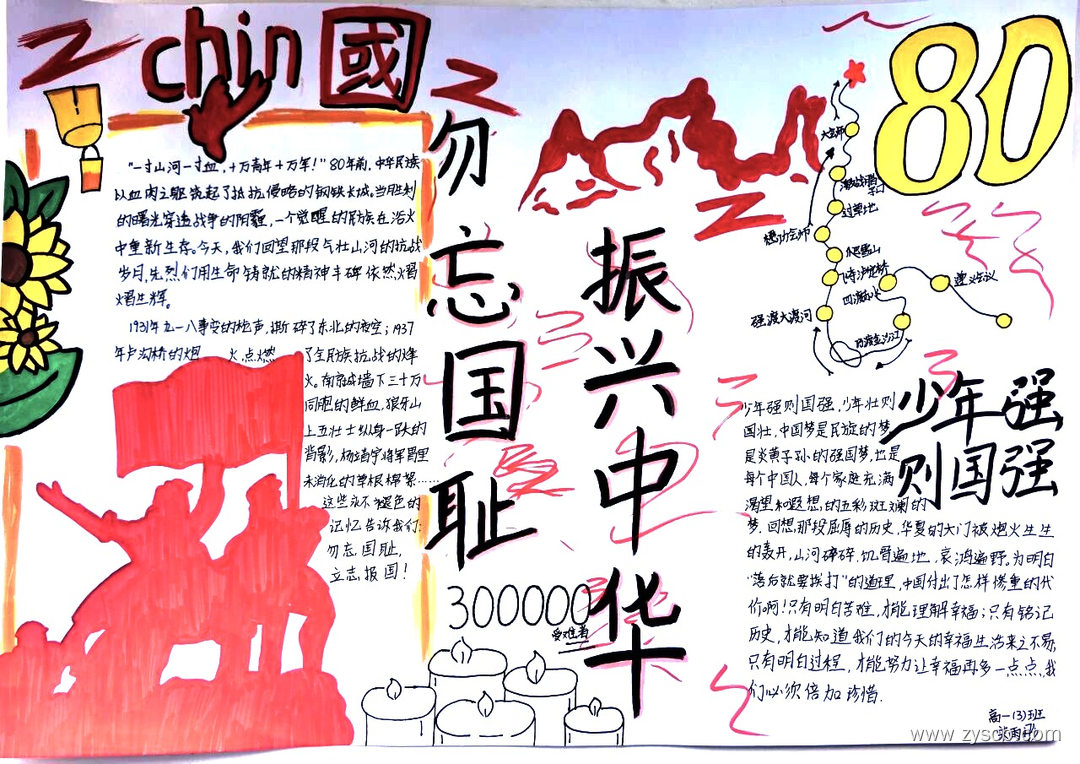 chin國
80
勿忘国耻
振兴中华
"一寸山河一寸血,十万青年十万军!"80年前,中华民族
以血肉之躯筑起了抵抗侵略的钢铁长城。当胜利
的曙光穿透战争的阴霾,一个觉醒的民族在浴火
中重新生存。今天,我们回望那段气壮山河的抗战
岁月,先烈们用生命铸就的精神丰碑依然熠
熠生辉。
1931年九一八事变的枪声,撕碎了东北的夜空;1937
年卢沟桥的烟火,点燃
了全民族抗战的烽
火。南京城墙下三十万
同胞的鲜血,狼牙山
上五壮士纵身一跃的
背影,杨靖宇将军胃里
未消化的草根棉絮……
这些永不褪色的
记忆告诉我们:
勿忘国耻,
立志报国!
300000
受难者
大会师
过草地
懋功会师
飞夺泸定桥
四渡赤水
遵义会议
强渡大渡河
巧渡金沙江
少年强
则国强
少年强则国强,少年壮则
国壮,中国梦是民族的梦,
是炎黄子孙的强国梦,也是
每个中国人,每个家庭充满
渴望和遐想的五彩斑斓的
梦。回想那段屈辱的历史,华夏的大门被炮火生生
的轰开,山河破碎,饥胥遍地,哀鸿遍野。为明白
"落后就要挨打"的道理,中国付出了怎样惨重的代
价啊!只有明白苦难,才能理解幸福;只有铭记
历史,才能知道我们的今天的幸福生活来之不易,
只有明白过程,才能努力让幸福再多一点点,我
们必须倍加珍惜.
高一(3)班
www.zyscb.com